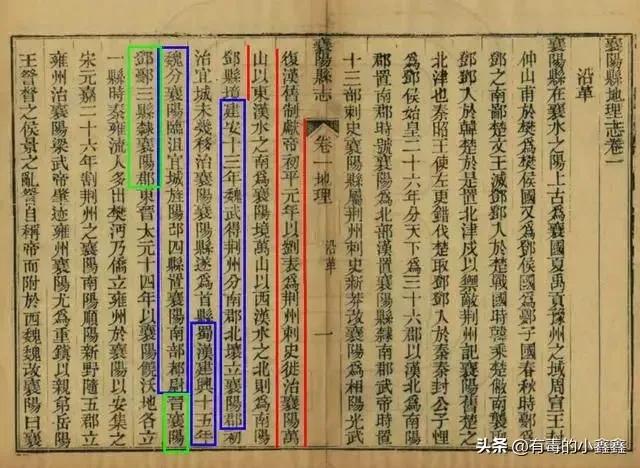 襄陽縣地理志卷一
沿革
襄陽縣在襄水之陽上古為襄國夏禹貢豫州之域周宣王封
仲山甫於樊為樊侯國又為鄧侯國為鄾子國春秋時鄾
鄧之南鄙楚文王滅鄧鄧人於楚戰國時韓乘楚敝南襲
鄧鄧人於韓楚於是置北津戍以禦敵荆州記襄陽舊楚之
北津也秦昭王使左更錯伐楚取鄧鄧人於秦秦封公子悝
為鄧侯始皇二十六年分天下為三十六郡以漢南
郡置南郡時號襄陽為北部漢置襄陽縣隸南郡武帝時置
十三部刺史襄陽縣屬荆州刺史新莽改襄陽為相陽光武
襄陽縣志
卷一地理
沿革
一
復漢舊制獻帝初平元年以劉表為荆州刺史徙治襄陽萬
山以東漢水之南為襄陽境萬山以西漢水之北則為南陽
鄧縣境建安十三年魏武得荆州分南郡北壤立襄陽郡初
治宜城未幾移治襄陽襄陽縣遂為首縣蜀漢建興十五年
魏分襄陽臨沮宜城旍陽邔四縣置襄陽南部都尉晉襄陽
鄧鄾三縣隸襄陽郡東晉太元十四年以襄陽饒沃地各立
一縣時秦雍流人多出樊沔乃僑立雍州於襄陽以安集之
宋元嘉二十六年割荆州之襄陽南陽順陽新野隨五郡立
雍州治襄陽梁武帝肇迹雍州襄陽尤為重鎮以親弟岳陽
王詧督之侯景之亂詧自稱帝而附於西魏魏改襄陽曰襄
头条 @有毒的小鑫鑫